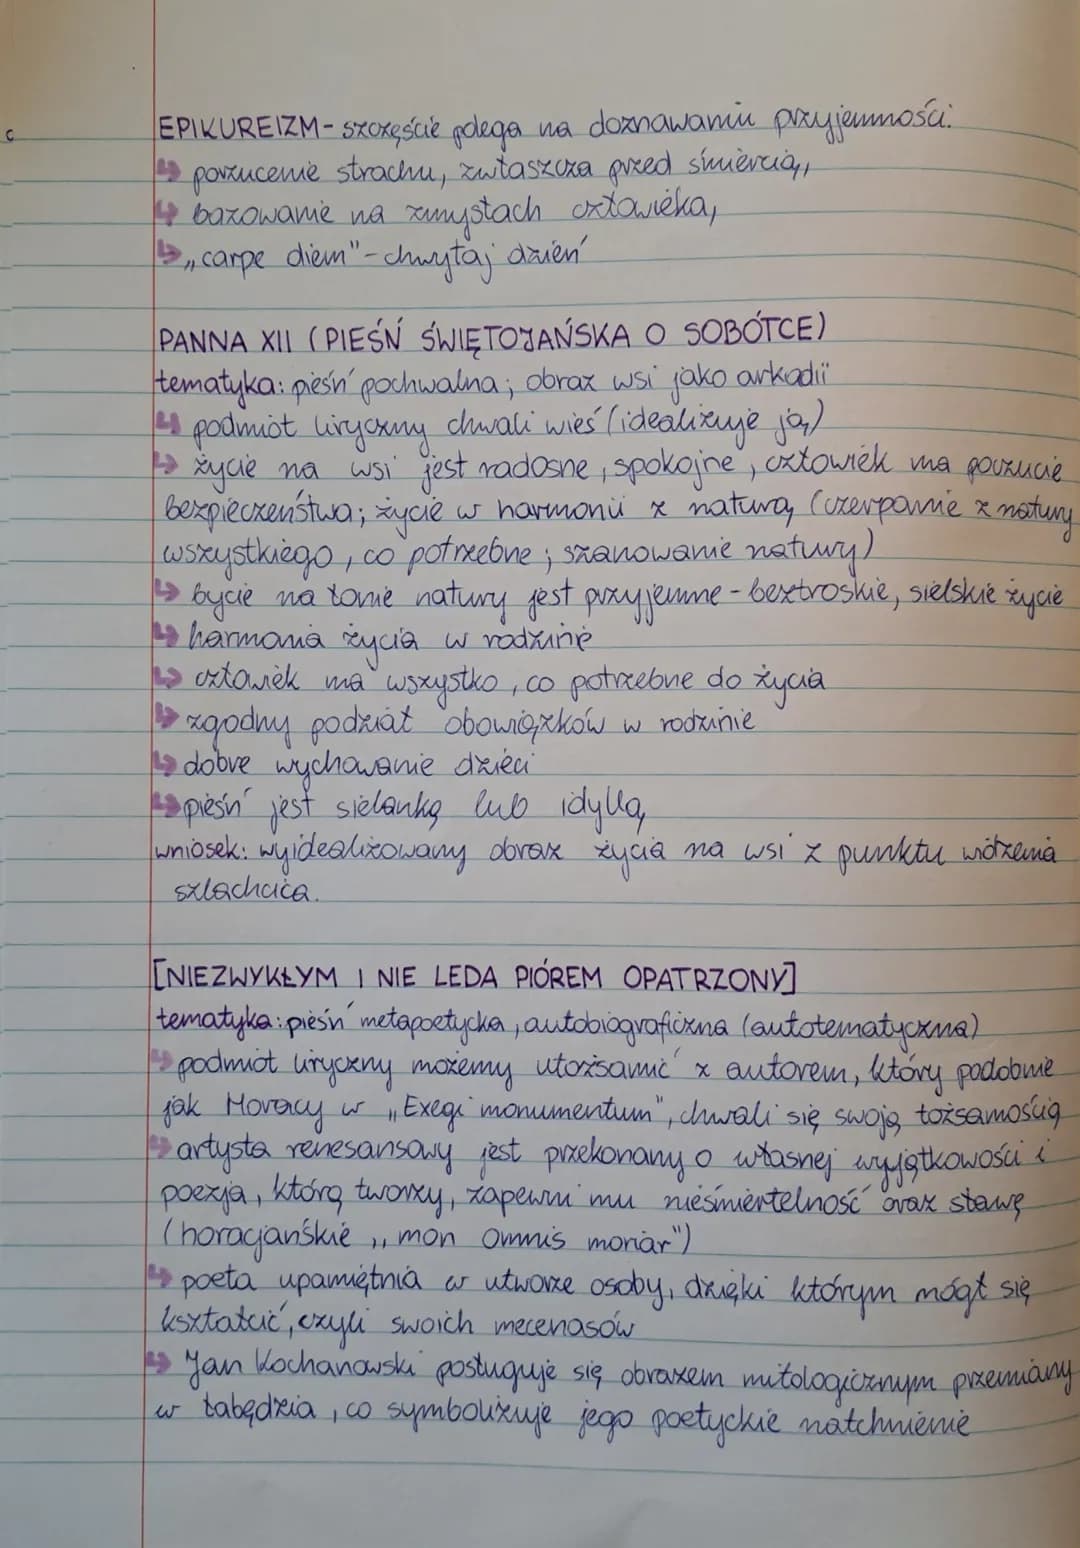 c
EPIKUREIZM - szczęście polega na doznawaniu przyjemności.
↳ porzucenie strachu, zwłaszcza przed śmiercią,
↳ bazowanie na zmysłach człowieka,
↳ „carpe diem" - chwytaj dzień
PANNA XII (PIEŚŃ ŚWIĘTOJAŃSKA O SOBÓTCE)
tematyka: pieśń pochwalna; obraz wsi jako arkadii
↳ podmiot liryczny chwali wieś (idealizuje ją)
↳ życie na wsi jest radosne, spokojne, człowiek ma poczucie
bezpieczeństwa; życie w harmonii z naturą (czerpanie z natury
wszystkiego, co potrzebne; szanowanie natury)
↳ bycie na łonie natury jest przyjemne - beztroskie, sielskie życie
↳ harmonia życia w rodzinie
↳ człowiek ma wszystko, co potrzebne do życia
↳ zgodny podział obowiązków w rodzinie
↳ dobre wychowanie dzieci
↳ pieśń jest sielanką lub idyllą
wniosek: wyidealizowany obraz życia na wsi z punktu widzenia
szlachcica.
[NIEZWYKŁYM I NIE LEDA PIÓREM OPATRZONY]
tematyka: pieśń metapoetycka, autobiograficzna (autotematyczna)
↳ podmiot liryczny możemy utożsamić z autorem, który podobnie
jak Horacy w „Exegi monumentum", chwali się swoją tożsamością
↳ artysta renesansowy jest przekonany o własnej wyjątkowości i
poezja, którą tworzy, zapewni mu nieśmiertelność oraz sławę
(horacjańskie „non omnis moriar")
↳ poeta upamiętnia w utworze osoby, dzięki którym mógł się
kształcić, czyli swoich mecenasów
↳ Jan Kochanowski posługuje się obrazem mitologicznym przemiany
w łabędzia, co symbolizuje jego poetyckie natchnienie